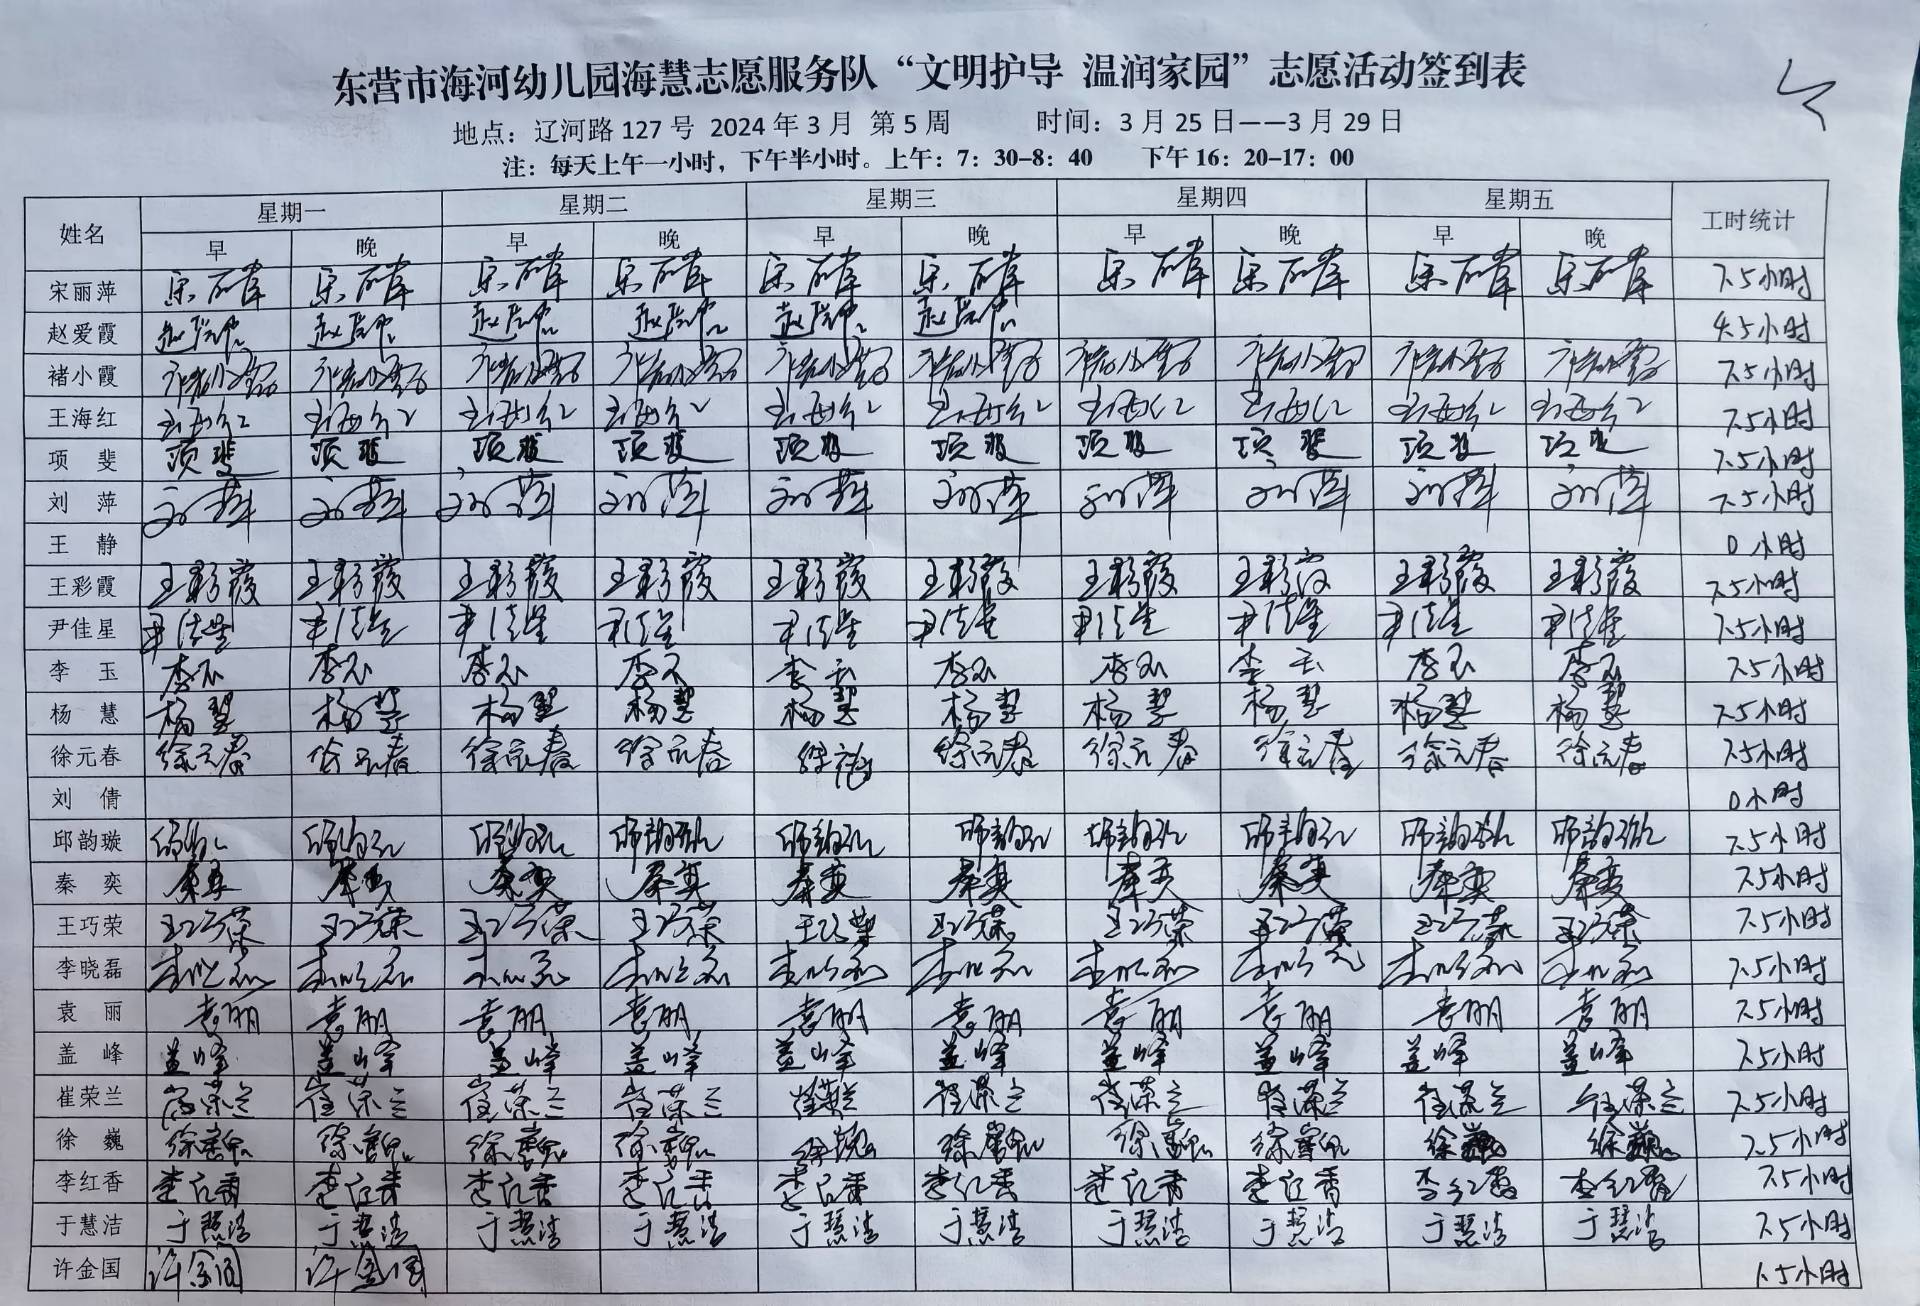 东营市海河幼儿园海慧志愿服务队“文明护导 温润家园”志愿活动签到表
地点：辽河路 127 号 2024 年 3 月 第 5 周 时间：3 月 25 日——3 月 29 日
注：每天上午一小时，下午半小时。上午：7：30-8：40 下午 16：20-17：00
姓名 星期一 星期二 星期三 星期四 星期五 工时统计
早 晚 早 晚 早 晚 早 晚 早 晚
宋丽萍 7.5小时
赵爱霞 4.5小时
褚小霞 7.5小时
王海红 王海红 王海红 王海红 王海红 王海红 王海红 王海红 王海红 王海红 王海红 7.5小时
项 斐 项斐 项斐 项斐 项斐 项斐 项斐 项斐 项斐 项斐 项斐 7.5小时
刘 萍 刘萍 刘萍 刘萍 刘萍 刘萍 刘萍 刘萍 刘萍 刘萍 刘萍 7.5小时
王 静 0小时
王彩霞 王彩霞 王彩霞 王彩霞 王彩霞 王彩霞 王彩霞 王彩霞 王彩霞 王彩霞 王彩霞 7.5小时
尹佳星 尹佳星 尹佳星 尹佳星 尹佳星 尹佳星 尹佳星 尹佳星 尹佳星 尹佳星 尹佳星 7.5小时
李 玉 李玉 李玉 李玉 李玉 李玉 李玉 李玉 李玉 李玉 李玉 7.5小时
杨 慧 杨慧 杨慧 杨慧 杨慧 杨慧 杨慧 杨慧 杨慧 杨慧 杨慧 7.5小时
徐元春 徐元春 徐元春 徐元春 徐元春 徐元春 徐元春 徐元春 徐元春 徐元春 7.5小时
刘 倩 0小时
邱韵璇 7.5小时
秦 奕 秦奕 秦奕 秦奕 秦奕 秦奕 秦奕 秦奕 秦奕 秦奕 秦奕 7.5小时
王巧荣 王巧荣 王巧荣 王巧荣 王巧荣 王巧荣 王巧荣 王巧荣 王巧荣 王巧荣 王巧荣 7.5小时
李晓磊 7.5小时
袁 丽 袁丽 袁丽 袁丽 袁丽 袁丽 袁丽 袁丽 袁丽 袁丽 袁丽 7.5小时
盖 峰 盖峰 盖峰 盖峰 盖峰 盖峰 盖峰 盖峰 盖峰 盖峰 盖峰 7.5小时
崔荣兰 崔荣兰 崔荣兰 崔荣兰 崔荣兰 崔荣兰 崔荣兰 崔荣兰 崔荣兰 崔荣兰 崔荣兰 7.5小时
徐 巍 徐巍 徐巍 徐巍 徐巍 徐巍 徐巍 徐巍 徐巍 徐巍 徐巍 7.5小时
李红香 李红香 李红香 李红香 李红香 李红香 李红香 李红香 李红香 李红香 李红香 7.5小时
于慧洁 于慧洁 于慧洁 于慧洁 于慧洁 于慧洁 于慧洁 于慧洁 于慧洁 于慧洁 于慧洁 7.5小时
许金国 许金国 许金国 1.5小时